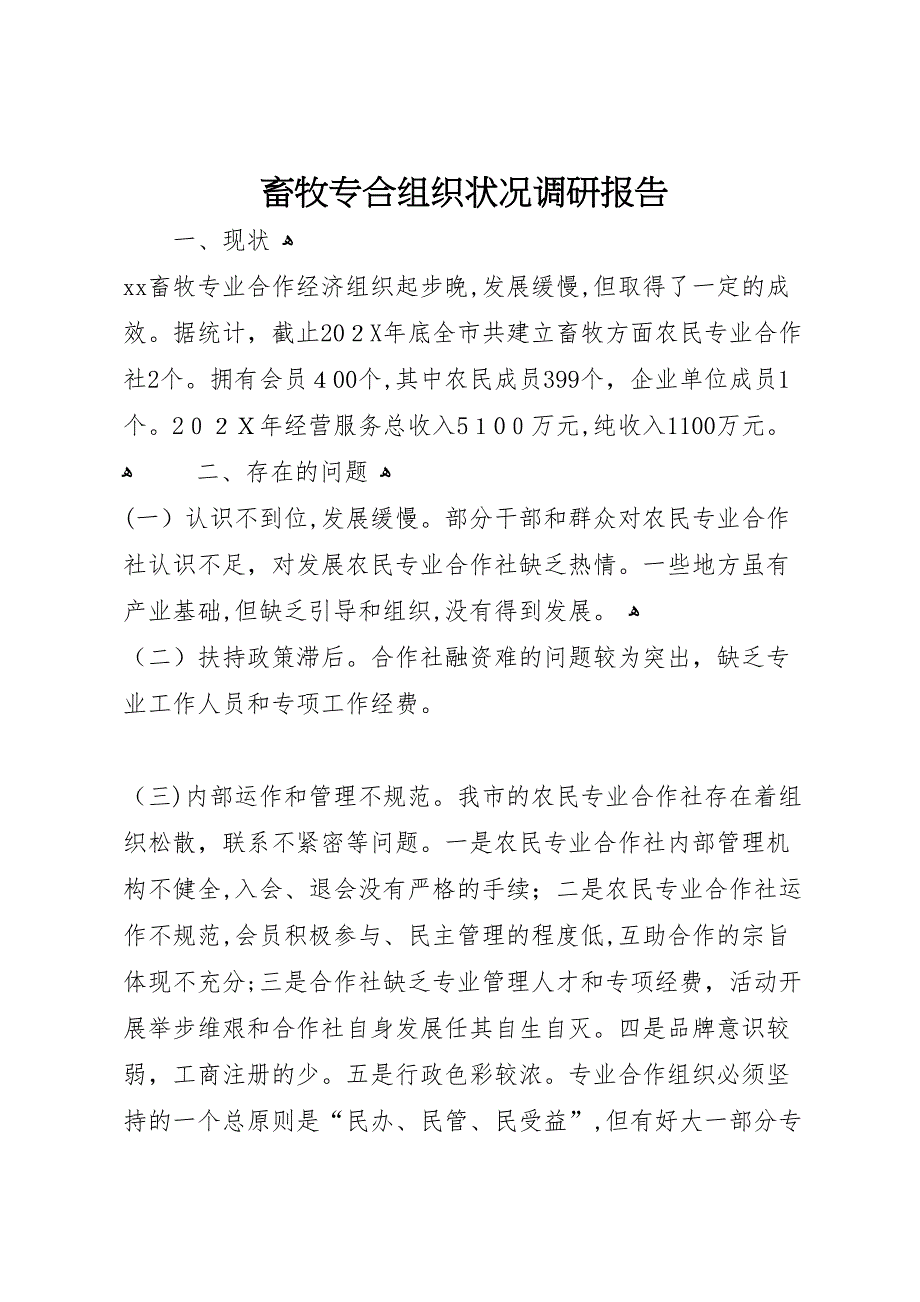 畜牧专合组织状况调研报告
一、现状 ﻫ
xx畜牧专业合作经济组织起步晚,发展缓慢,但取得了一定的成
效。据统计，截止20２X年底全市共建立畜牧方面农民专业合作
社2个。拥有会员４00个,其中农民成员399个，企业单位成员1
个。2０２Ｘ年经营服务总收入5１0０万元,纯收入1100万元。
ﻫ 二、存在的问题 ﻫ
(一）认识不到位,发展缓慢。部分干部和群众对农民专业合作
社认识不足，对发展农民专业合作社缺乏热情。一些地方虽有
产业基础,但缺乏引导和组织,没有得到发展。 ﻫ
（二）扶持政策滞后。合作社融资难的问题较为突出，缺乏专
业工作人员和专项工作经费。
（三)内部运作和管理不规范。我市的农民专业合作社存在着组
织松散，联系不紧密等问题。一是农民专业合作社内部管理机
构不健全,入会、退会没有严格的手续；二是农民专业合作社运
作不规范,会员积极参与、民主管理的程度低,互助合作的宗旨
体现不充分;三是合作社缺乏专业管理人才和专项经费，活动开
展举步维艰和合作社自身发展任其自生自灭。四是品牌意识较
弱，工商注册的少。五是行政色彩较浓。专业合作组织必须坚
持的一个总原则是“民办、民管、民受益”,但有好大一部分专